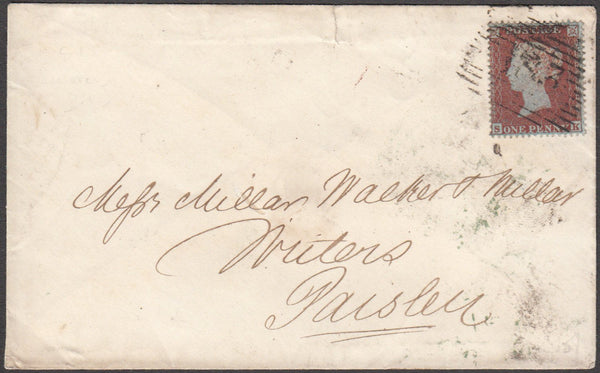 POSTAGE
S ONE PENNY K
Messrs Millar Walker & Millar
Writers
Paisley